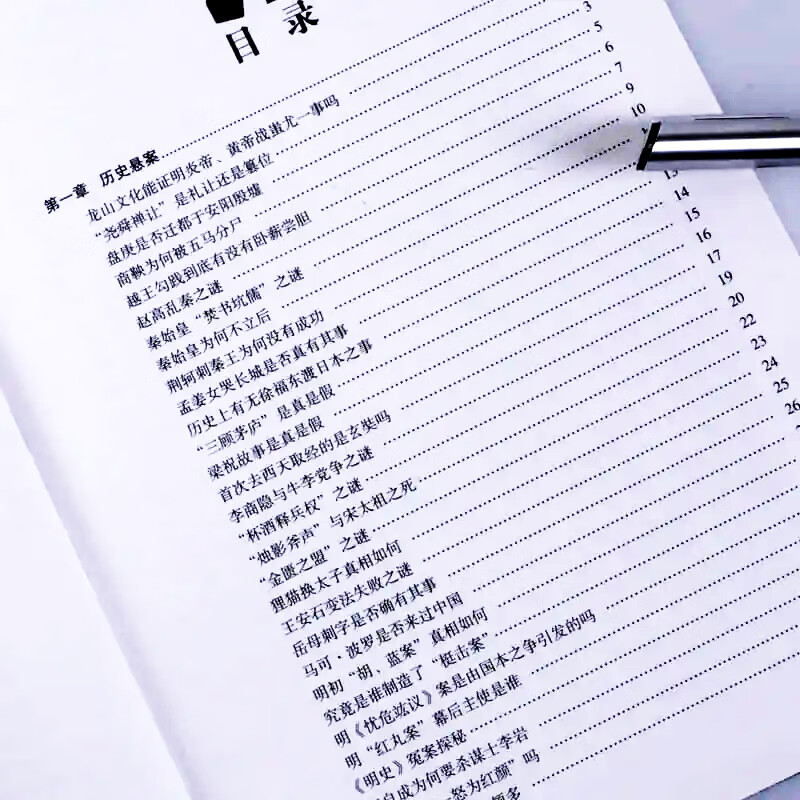 目录
第一章 历史悬案
龙山文化能证明炎帝、黄帝战蚩尤一事吗 3
“尧舜禅让”是礼让还是篡位 5
盘庚是否迁都于安阳殷墟 6
商鞅为何被五马分尸 7
越王勾践到底有没有卧薪尝胆 9
赵高乱秦之谜 10
秦始皇“焚书坑儒”之谜
秦始皇为何不立后 13
荆轲刺秦王为何没有成功 14
孟姜女哭长城是否真有其事 15
历史上有无徐福东渡日本之事 16
“三顾茅庐”是真是假 17
梁祝故事是真是假 19
首次去西天取经的是玄奘吗 20
李商隐与牛李党争之谜 22
“杯酒释兵权”之谜 23
“烛影斧声”与宋太祖之死 24
“金匮之盟”之谜 25
狸猫换太子真相如何 26
王安石变法失败之谜
岳母刺字是否确有其事
马可·波罗是否来过中国
明初“胡、蓝案”真相如何
究竟是谁制造了“梃击案”
明《忧危竑议》案是由国本之争引发的吗
明“红丸案”幕后主使是谁
《明史》冤案探秘
自成为何要杀谋士李岩
怒为红颜”吗